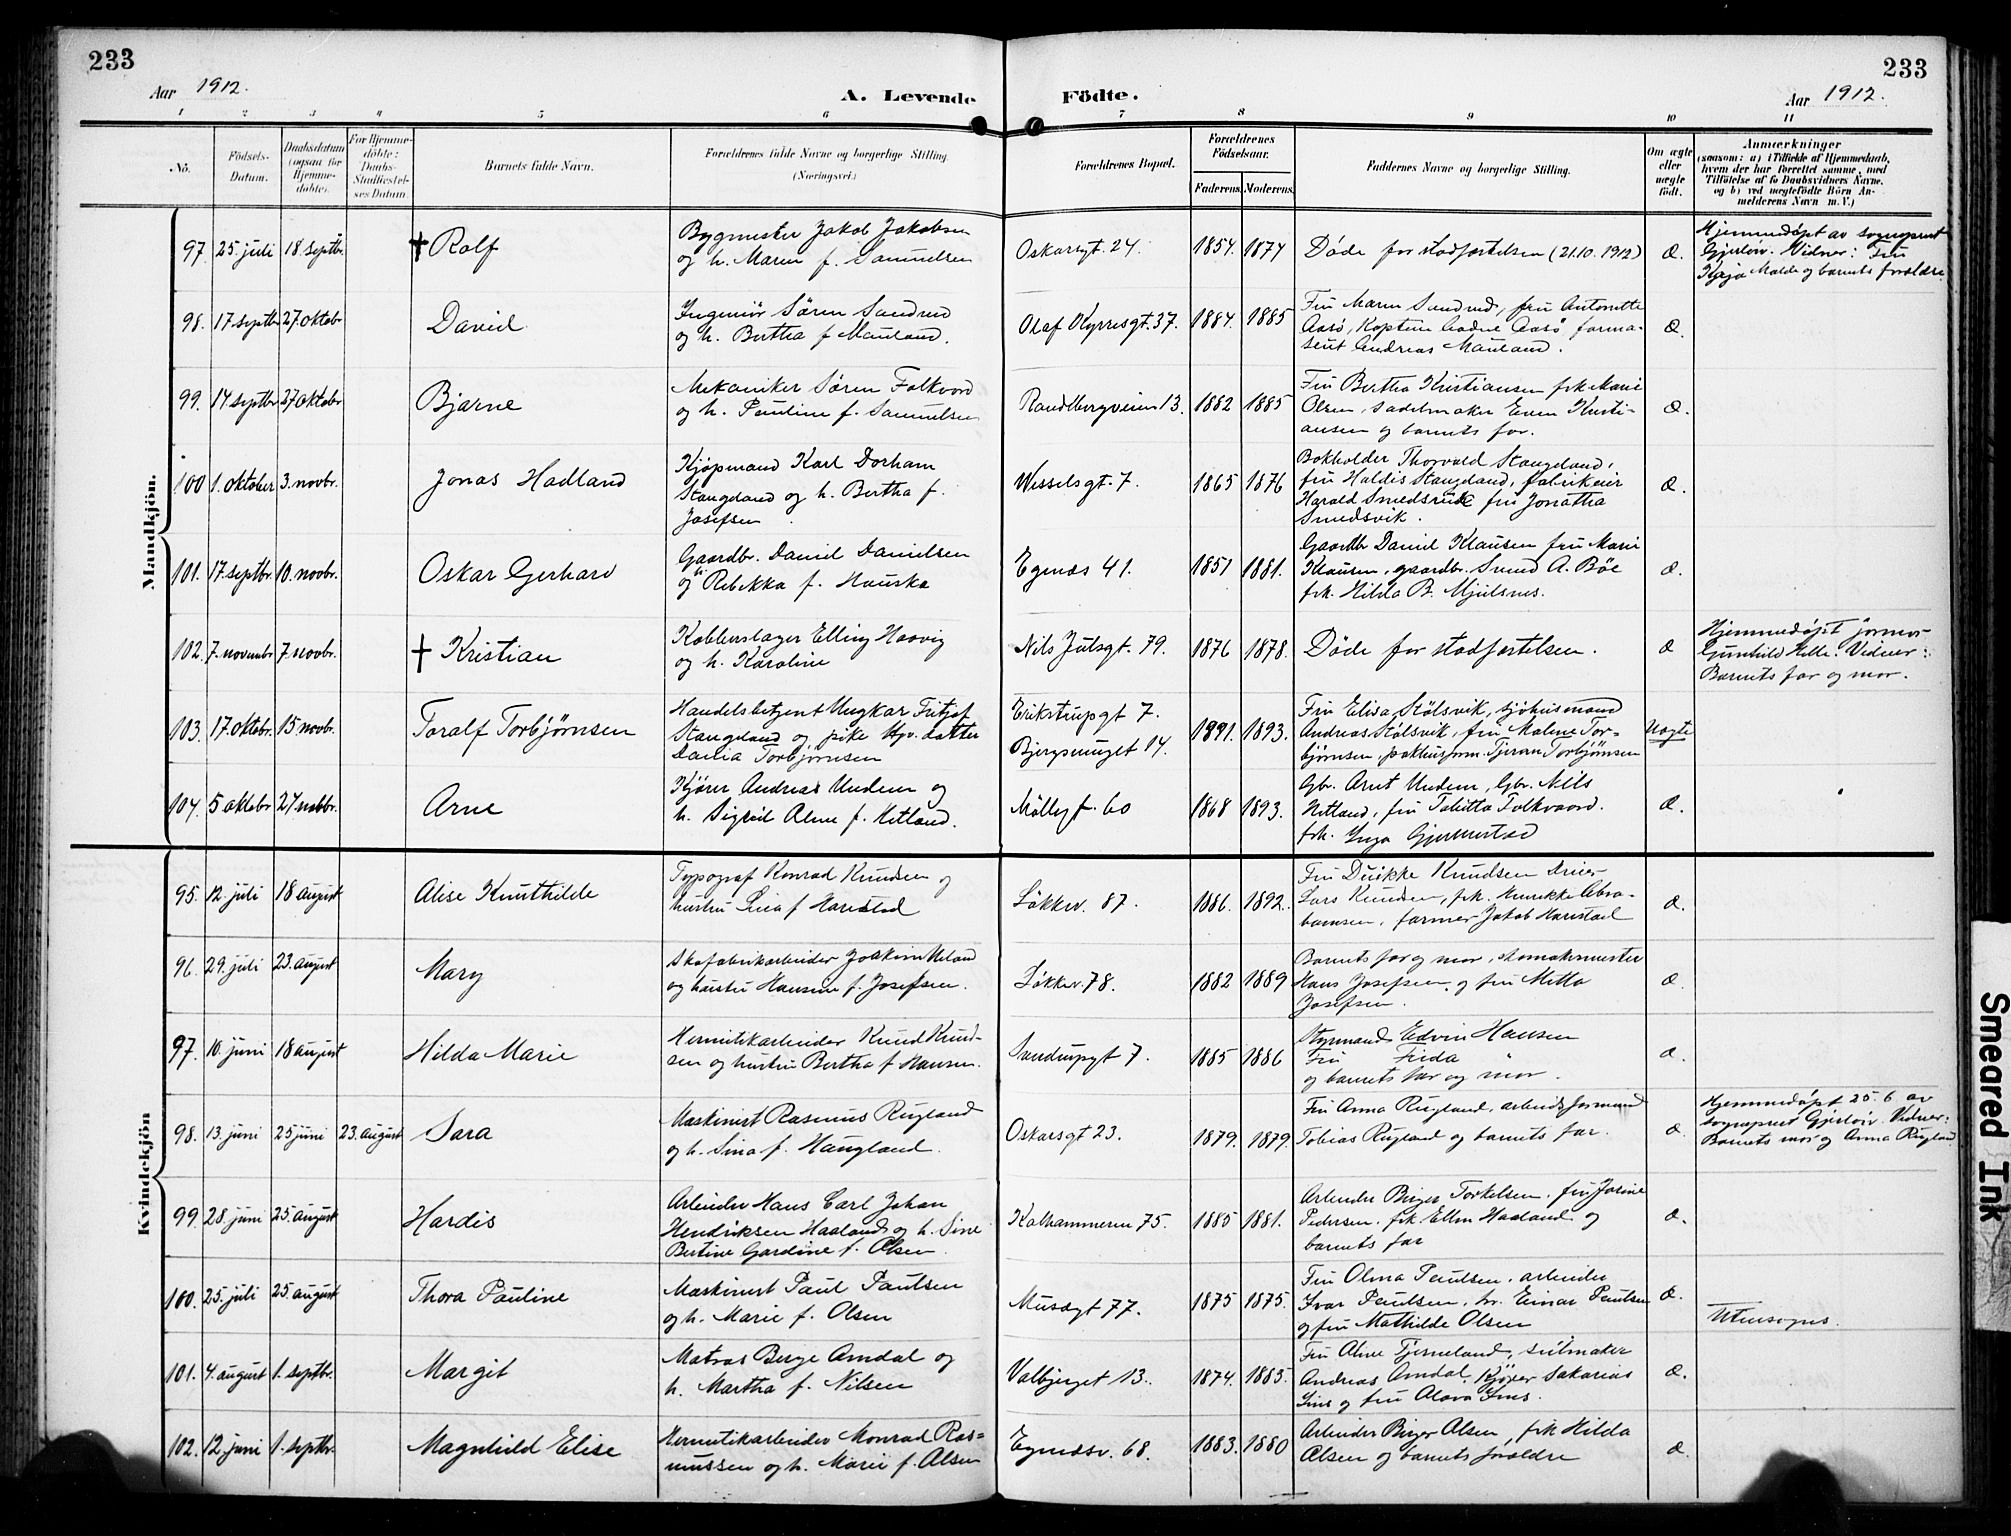 233
233
Aar 1912.
A. Levende Födte.
Aar 1912.
1 2 3 4 5 6 7 8 9 10 11
No.
Födsels-Datum.
Daabsdatum (ogsaa for Hjemme-døbte).
For Hjemme-döbte: Daabs-Stadfæstel-ses Datum
Barnets fulde Navn.
Forældrenes fulde Navne og borgerlige Stilling. (Næringsvei.)
Forældrenes Bopæl.
Forældrenes Födselsaar.
Faderens. Moderens.
Faddernes Navne og borgerlige Stilling.
Om ægte eller uægte födt.
Anmærkninger
(saasom: a) i Tilfælde af Hjemmedaab, hvem der har forrettet samme, med Tilföielse af to Daabsvidners Navne, og b) ved uægtefödte Börn An-melderens Navn m.V.)
Mandkjön.
97. 25 juli 18 septbr. † Rolf
Bygmester Jakob Jakobsen
og h. Maren f. Samuelsen
Oskarsgt. 24. 1854. 1874 Døde før stadfestelsen (21.10.1912) Æ.
Hjemmedøpt av sogneprest
Gjerløv. Vidner: Fru
Malde og barnets forældre
98. 17 septbr 27. oktobr David
Ingeniør Søren Sandrud
og h. Bertha f Mauland.
Olaf Kyrresgt. 37. 1884. 1885
Fru Maren Sandrud, fru Antonette
Aarø, Kaptein Aarø farma-
seut Andreas Mauland.
Æ
99. 14 septbr 27 oktobr Bjarne
Mekaniker Søren Folkvord
og h. Pauline f. Samuelsen
Randbergveien 13. 1882 1885
Fru Bertha Kristiansen frk Marie
Olsen, Sadelmaker Even Kristi-
ansen og barnets far.
Æ.
100 1. oktober 3. novbr. Jonas Hadland
Kjøpmand Karl Dorham
Stangeland og h. Bertha f.
Josefsen
Wesselsgt. 7. 1865 1876
Bokholder Thorvald Stangeland,
fru Haldis Stangeland, fabrikeier
Harald Smedsvik fru Jonatha
Smedsvik.
Æ.
101. 17. septbr. 10. novbr. Oskar Gerhard
Gaardbr. Daniel Danielsen
og h. Rebekka f. Hauske
Egenæs 41. 1851 1881.
Gaardbr Daniel Klausen fru Marie
Klausen, gaardbr. Svend A. Bøe
frk. Hilda B. Mjelsnes.
Æ.
102. 7. novembr 7. novbr. † Kristian
Kobberslager Elling Haavig
og h. Karoline
Nils Julsgt. 79. 1876 1878. Døde før stadfestelsen. Æ
Hjemmedøpt jormor
Gunhild Helle. Vidner:
Barnets far og mor.
103. 17. oktobr. 15. novbr. Toralf Torbjørnsen
Handelsbetjent Ungkar Fritjof
Stangeland og pike Hpv. datter
Dania Torbjørnsen
Erikstrupgt 7.
Bjergsmuget 14.
1891. 1893.
Fru Elisa Stølsvik, sjøhusmand
Andreas Stølsvik, fru Malene Tor-
bjørnsen, pakhusform. Tjeran Torbjørnsen
Uægte
104. 5 oktobr 24 novbr. Arne
Kjører Andreas Undem og
h. Sigrid Alme f. Hetland.
Møllegt. 60 1868 1893.
Gbr. Arnt Undem, Gbr. Nils
Hetland, fru Tabitta Folkvaord.
frk. Inga Gjermestad
Æ.
Kvindekjön
95. 12. juli 18 august Alise Knuthilde
Typograf Konrad Knudsen og
hustru Lina f Harestad
Løkkev. 87. 1886. 1892.
Fru Duikke Knudsen
Lars Knudsen, frk. Henrikke Abra-
hamsen, farmer Jakob Harestad
Æ.
96. 29. juli 23. august Mary
Skofabrikarbeider Joakim Meland
og hustru Hansine f. Josefsen.
Løkkev. 78. 1882 1889
Barnets far og mor, skomakermester
Hans Josefsen. og fru Mette
Josefsen.
Æ.
97. 10. juni 18 august Hilda Marie
Hermetikarbeider Knud Knud-
sen og hustru Bertha f Hansen.
Sandrupgt 7. 1885 1886
Styrmand Edvin Hansen
Fru Frida "
og barnets far og mor.
Æ.
98. 13. juni 25 juni 23. august Sara
Maskinist Rasmus Rugland
og h. Sina f. Haugland.
Oskarsgt 23. 1879. 1879.
Fru Anna Rugland, arbeidsformand
Tobias Rugland og barnets far.
Æ
Hjemmedøpt 25.6. av
sogneprest Gjerløv. Vidner:
Barnets mor og Anna Rugland
99. 28. juni 25. august Hardis
Arbeider Hans Carl Johan
Hendriksen Haaland og h. Sine
Bertine Gardine f. Olsen.
Kalhammeren 75. 1885 1881.
Arbeider Birger Torkelsen, fru Josine
Pedersen. frk Ellen Haaland og
barnets far
Æ.
100. 25. juli 25. august Thora Pauline
Maskinist Paul Paulsen
og h. Marie f. Olsen
Musægt 77. 1875 1875.
Fru Olma Paulsen, arbeider
Ivar Paulsen, hr. Einar Paulsen
og fru Mathilde Olsen
Æ.
Utensogns.
101. 4. august 1. septbr. Margit
Matros Berge Amdal og
h. Martha f. Nilsen
Valbjerget 13. 1874. 1885.
Fru Aline Tjemeland, seilmaker
Andreas Amdal, Kjører Sakarias
Lius og fru Olava Lius.
Æ.
102. 12. juni 1. septbr. Magnhild Elise
Hermetikarbeider Monrad Ras-
mussen og h. Marie f. Olsen
Egenæsv. 68. 1883. 1880
Arbeider Birger Olsen, frk Hilda
Olsen og barnets forældre
Æ.
Smeared Ink